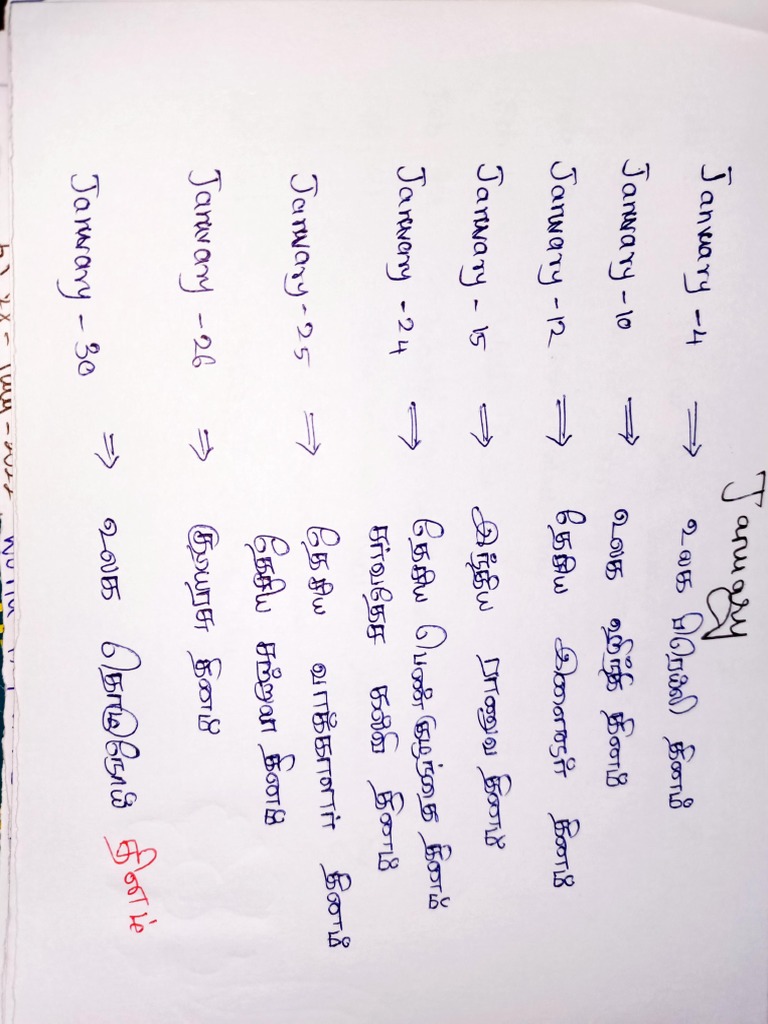 January
January - 4 ⇒ உலக பிரெய்லி தினம்
January - 10 ⇒ உலக ஹிந்தி தினம்
January - 12 ⇒ தேசிய இளைஞர் தினம்
January - 15 ⇒ இந்திய ராணுவ தினம்
January - 24 ⇒ தேசிய பெண் குழந்தை தினம்
சர்வதேச கல்வி தினம்
January - 25 ⇒ தேசிய வாக்காளர் தினம்
தேசிய சுற்றுலா தினம்
January - 26 ⇒ குடியரசு தினம்
January - 30 ⇒ உலக தொழுநோய் தினம்